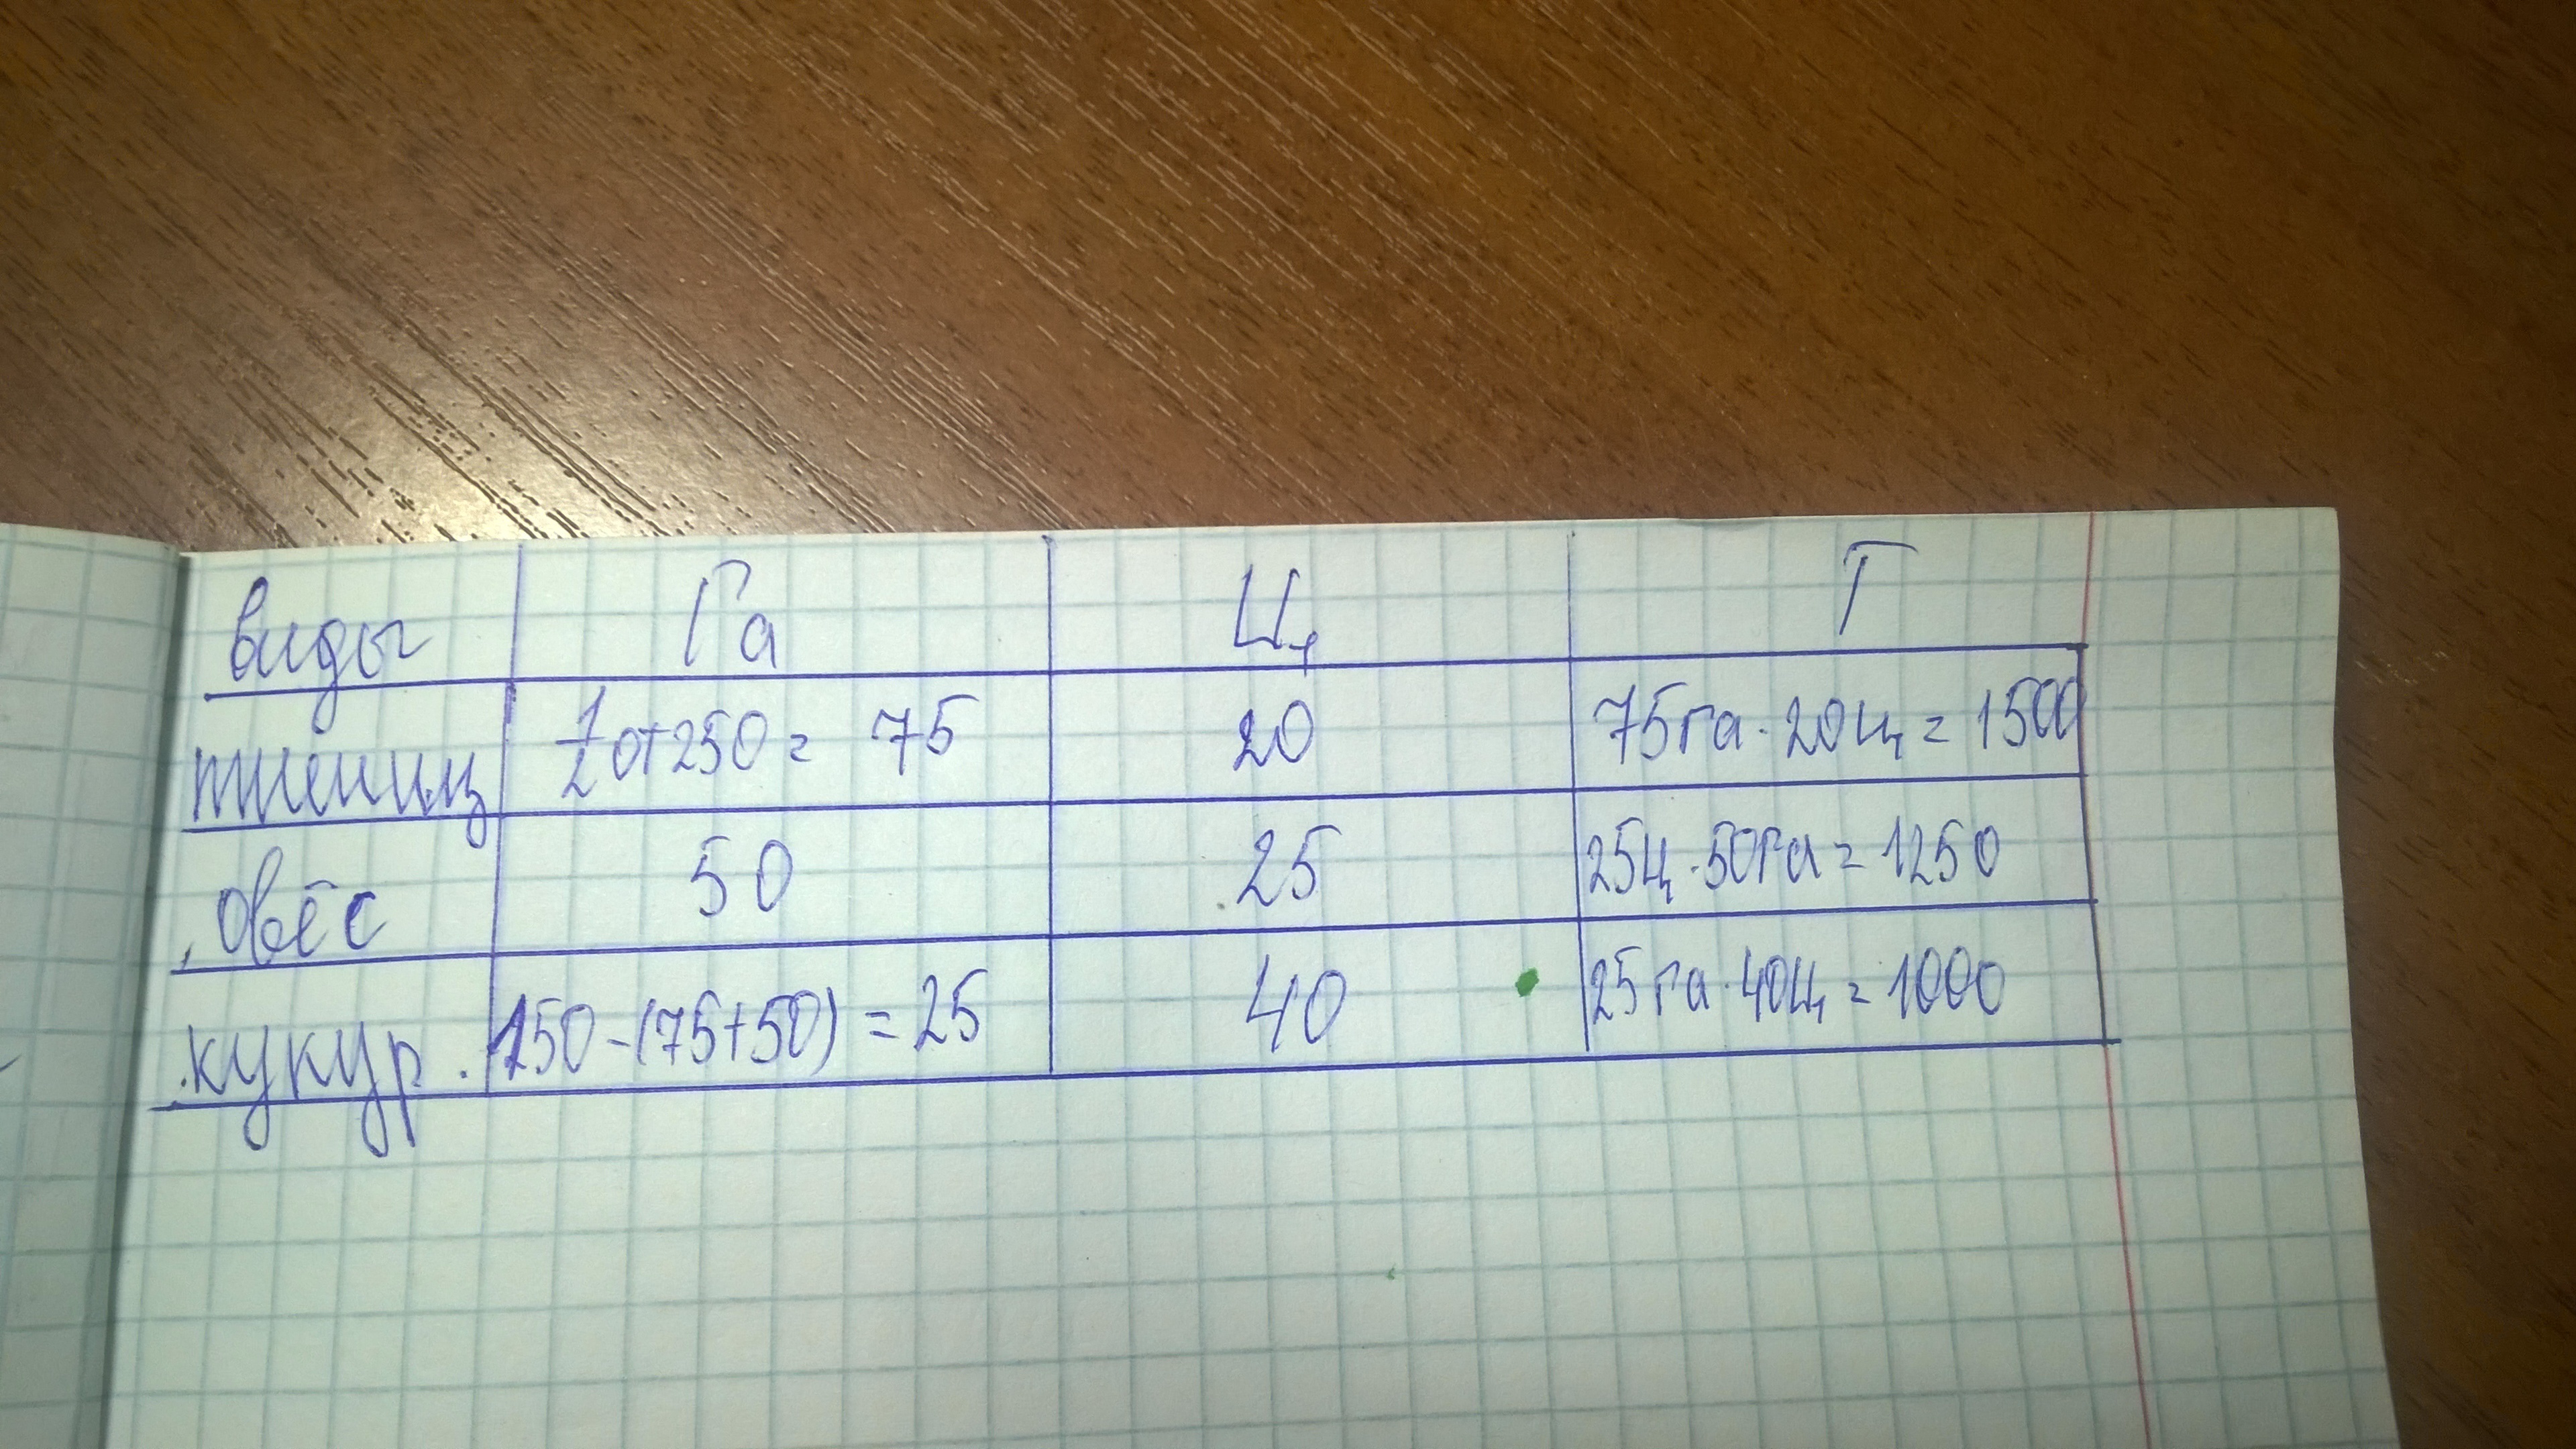 виды Га Ц Т
пшениц 1/2 от 250 = 75 20 75га · 20ц = 1500
овёс 50 25 25ц · 50га = 1250
кукур. 150 - (75+50) = 25 40 25га · 40ц = 1000